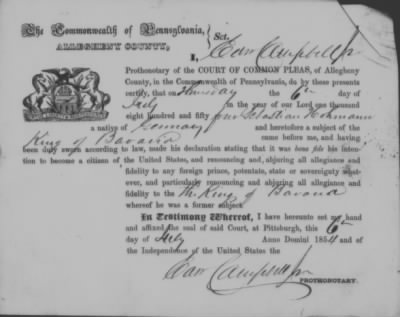 The Commonwealth of Pennsylvania,
ALLEGHENY COUNTY,
Sct.
I, Campbell Jr
Prothonotary of the COURT OF COMMON PLEAS, of Allegheny
County, in the Commonwealth of Pennsylvania, do by these presents
certify, that on Thursday the 6th day of
July in the year of our Lord one thousand
eight hundred and fifty four Sebastian Hohmann
a native of Germany and heretofore a subject of the
King of Bavaria came before me, and having
been duly sworn according to law, made his declaration setting that it was bona fide his inten-
tion to become a citizen of the United States, and renouncing and, abjuring all allegiance and
fidelity to any foreign prince, potentate, state or sovereignty what-
ever, and particularly renouncing and abjuring all allegiance and
fidelity to the The King of Bavaria
whereof he was a former subject
In Testimony Whereof, I have hereunto set my hand
and affixed the seal of said Court, at Pittsburgh, this 6th
day of July Anno Domini 1854 and of
the Independence of the United States the
Campbell Jr
PROTHONOTARY.